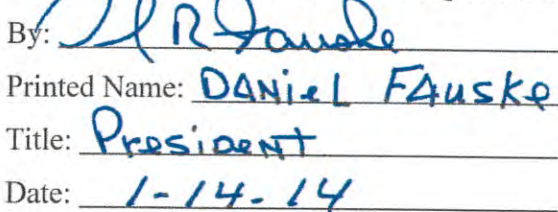 By: D R Fauske
Printed Name: DANiel FAuske
Title: President
Date: 1-14-14